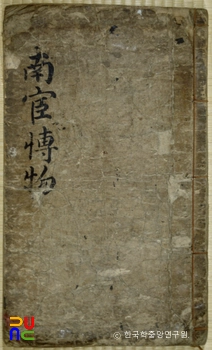 南宦博物
© 한국학중앙연구원